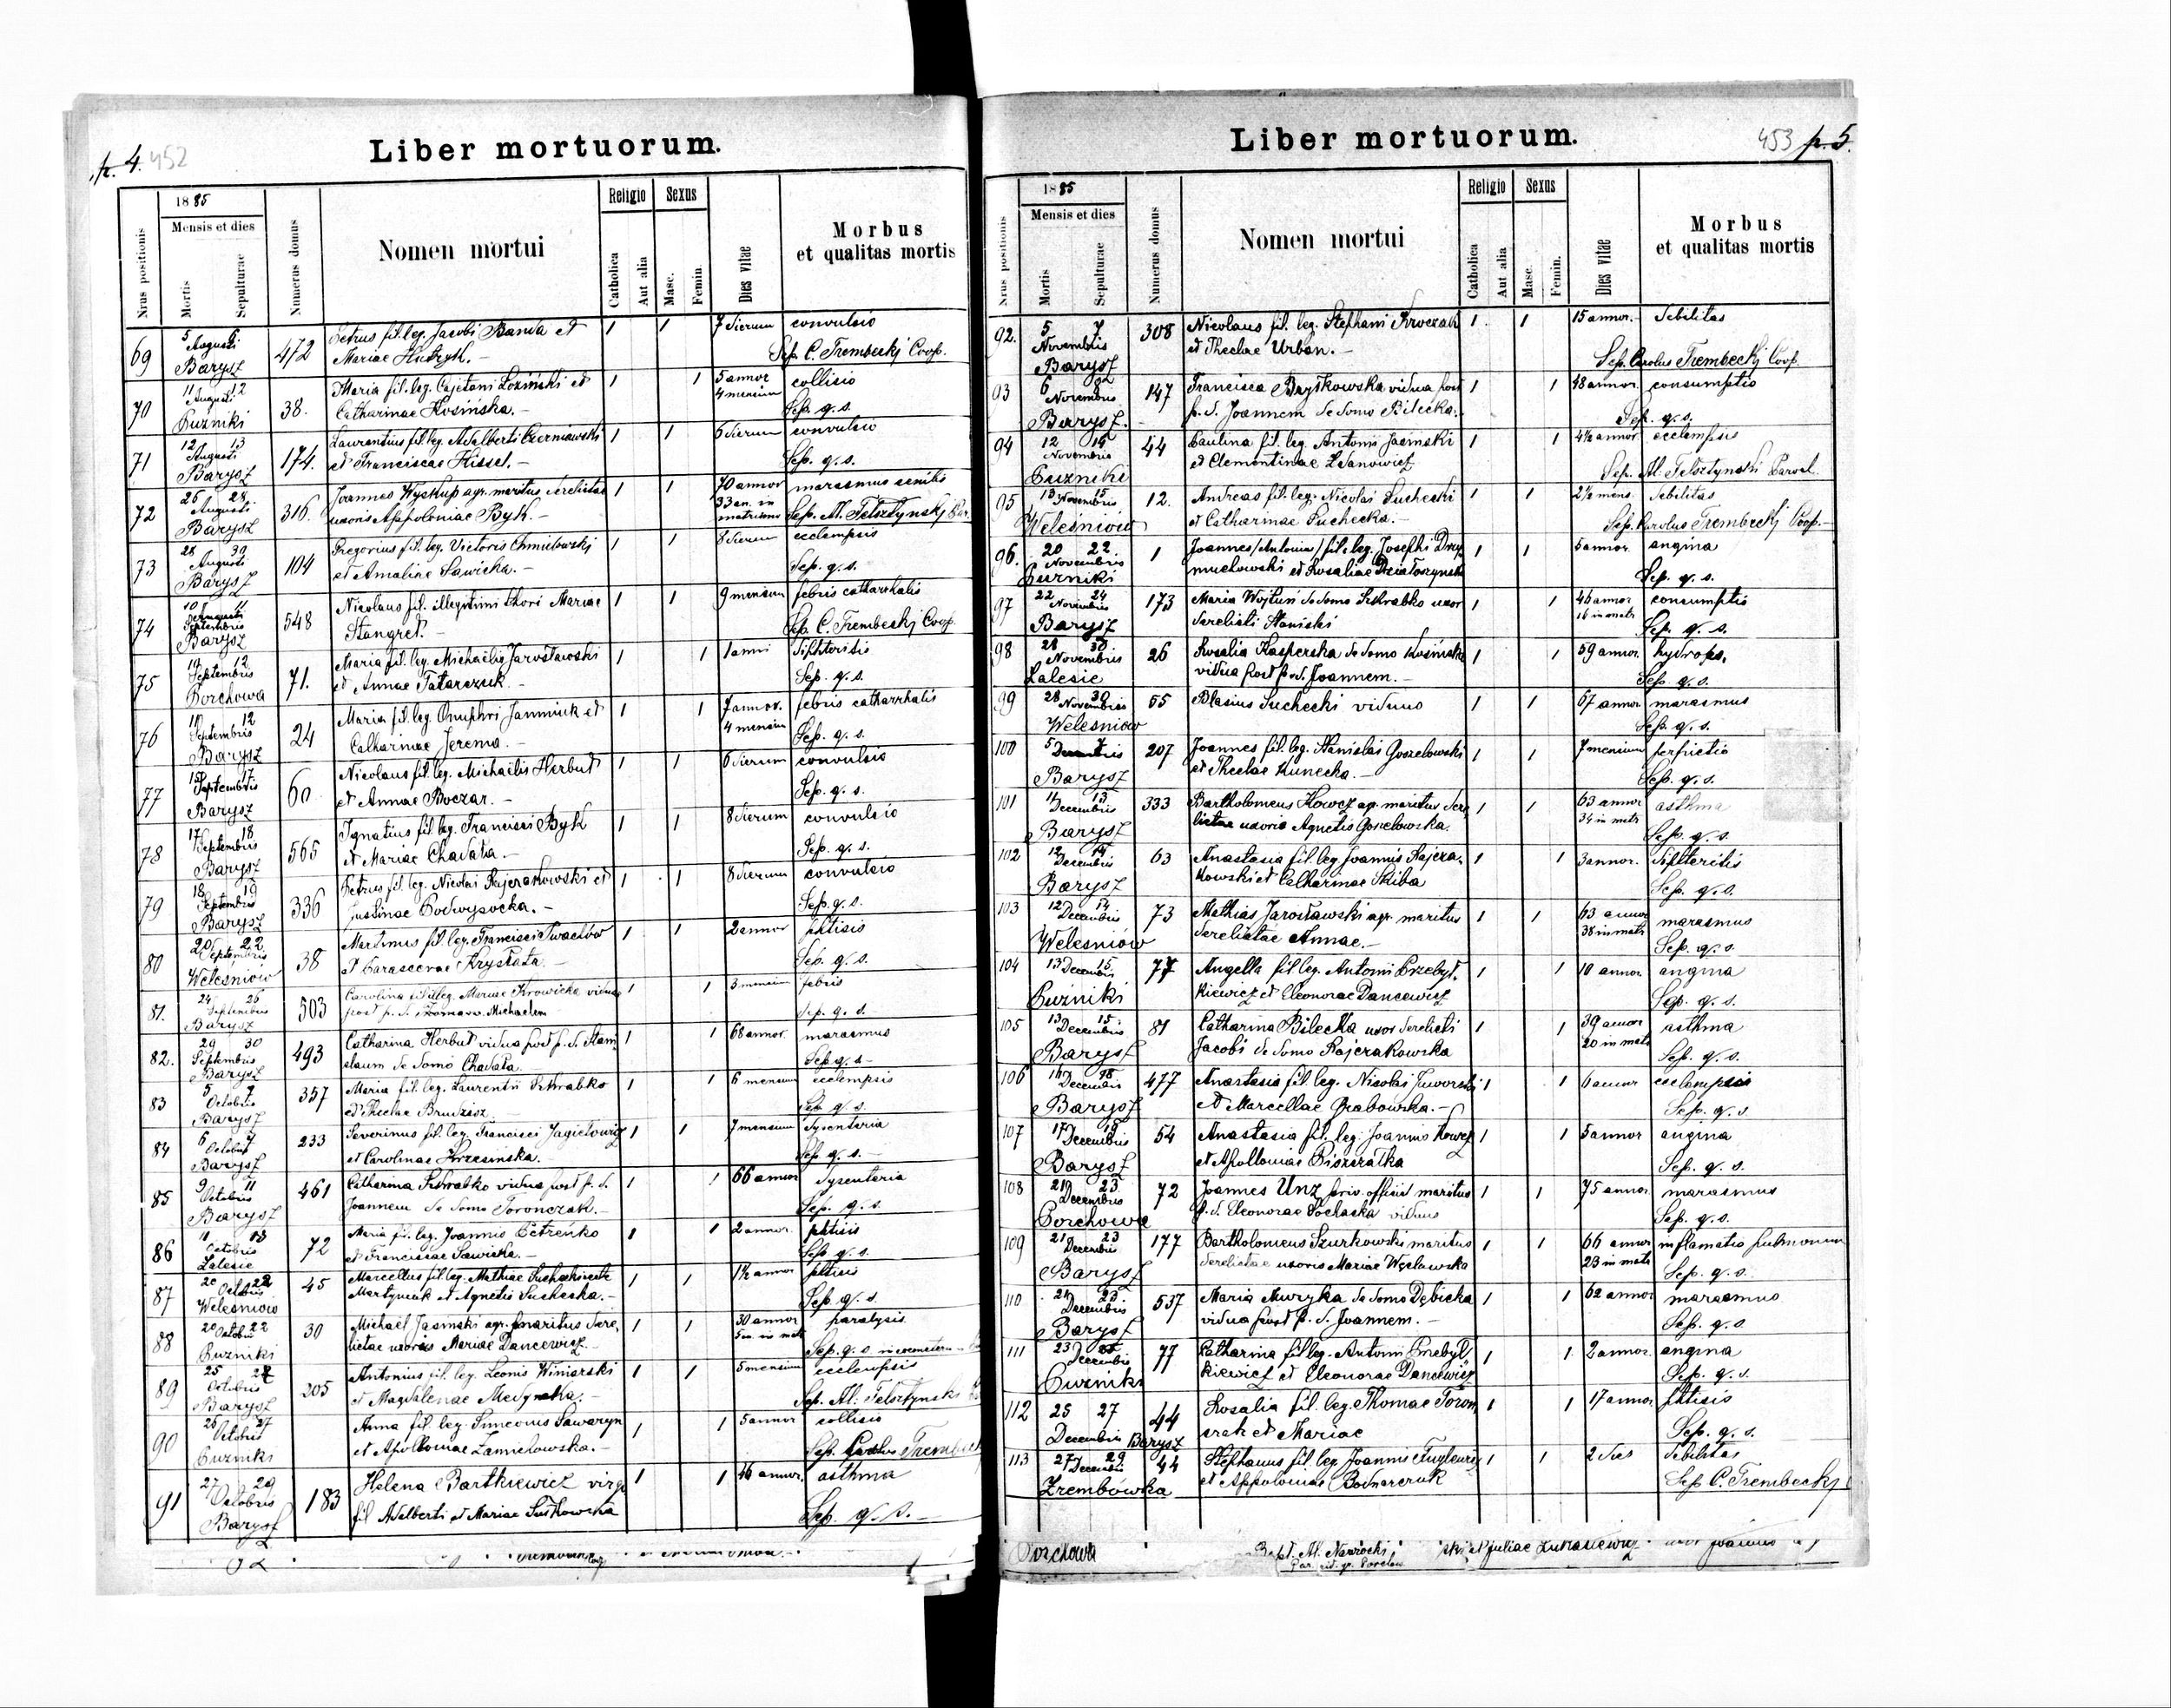 p. 4. 452
Liber mortuorum.
Nrus positionis
1885
Mensis et dies
Mortis
Sepulturae
Numerus domus
Nomen mortui
Religio
Catholica
Aut alia
Sexus
Masc.
Femin.
Dies vitae
Morbus
et qualitas mortis
69 5 6 Augusti Barysz 472 Petrus fil. leg. Jacobi Banda et 1 1 7 dierum convulsio
Mariae Hudzyk.— Sep. C. Trembecki Coop.
70 11 12 Augusti Puzniki 38. Maria fil. leg. Cajetani Łoziński et 1 1 5 annor 4 mensium collisio
Catharinae Kosińska.— Sep. q. s.
71 12 13 Augusti Barysz 174. Laurentius fil. leg. Adalberti Czerniawski 1 1 6 dierum convulsio
et Franciscae Kissel.— Sep. q. s.
72 26 28. Augusti Barysz 316. Joannes Wyskup agr. maritus derelictae 1 1 70 annor 33 an. in matrimo marasmus senilis
uxoris Appoloniae Byk.— Sep. Al. Telsztynski Par.
73 28 30 Augusti Barysz 104 Gregorius fil. leg. Victoris Chmielowski 1 1 8 dierum ecclempsis
et Amaline Sawicka.— Sep. q. s.
74 10 11 Septembris Barysz 548 Nicolaus fil. illegitimi thori Mariae 1 1 9 mensium febris catharrhalis
Stangret. Sep. C. Trembecki Coop.
75 12 Septembris Porchowa 71. Maria fil. leg. Michaelis Jarosławski 1 1 1 anni difteritis
et Annae Tatarczuk.— Sep. q. s.
76 12 Septembris Barysz 24 Maria fil. leg. Onuphri Janmiuk et 1 1 7 annor. 4 mensium febris catharrhalis
Catharinae Jerema.— Sep. q. s.
77 15 17 Septembris Barysz 60 Nicolaus fil. leg. Michaelis Herbut 1 1 6 dierum convulsio
et Annae Boczar.— Sep. q. s.
78 17 18 Septembris Barysz 565 Ignatius fil. leg. Francisci Byk 1 1 8 dierum convulsio
et Mariae Chadała.— Sep. q. s.
79 18 19 Septembris Barysz 336 Petrus fil. leg. Nicolai Rajczakowski et 1 1 8 dierum convulsio
Justinae Podwysocka.— Sep. q. s.
80 20 22 Septembris Welesniow 38 Martinus fil. leg. Francisci Iwachów 1 1 2 annor phtisis
et Parascevae Kryształa.— Sep. q. s.
81. 24 26 Septembris Barysz 503 Carolina fil illeg. Mariae Krowicka viduae 1 1 3 mensium febris
post p. d. Michaelem Sep. q. s.
82. 29 30 Septembris Barysz 493 Catharina Herbut vidua post p. d. Stani 1 1 68 annor. marasmus
slaum de domo Chadała.— Sep. q. s.—
83 5 7 Octobris Barysz 357 Maria fil. leg. Laurentii Szkrabko 1 1 6 mensium ecclempsis
et Theclae Brudzisz.— Sep. q. s.
84 6 7 Octobris Barysz 233 Severinus fil. leg. Francisci Jagielowicz 1 1 7 mensium dysenteria
et Carolinae Krzesinska.— Sep. q. s.—
85 9 11 Octobris Barysz 461 Catharina Szkrabko vidua post p. d. 1 1 66 annor dysenteria
Joannem de domo Toronczak.— Sep. q. s.
86 11 13 Octobris Zalesie 72 Maria fil. leg. Joannis Pietreńko 1 1 2 annor. phtisis
et Franciscae Sawicka.— Sep. q. s.
87 20 22 Octobris Welesniow 45 Marcellus fil. leg. Mathiae Suchecki recte 1 1 1½ annor phtisis
Martyniuk et Agnetis Suchecka.— Sep. q. s.
88 20 22 Octobris Puzniki 30 Michael Jasinski agr. maritus dere- 1 1 30 annor 5 an. in matr paralysis
lictae uxoris Mariae Dancewicz.— Sep. q. s.
89 25 27 Octobris Barysz 205 Antonius fil. leg. Leonis Winiarski 1 1 5 mensium ecclempsis
et Magdalenae Medynska.— Sep. Al. Telsztynski
90 25 27 Octobris Puzniki Anna fil. leg. Simeonis Sawaryn 1 1 5 annor collisio
et Apolloniae Zamielowska.— Sep. Carolus Trembecki
91 27 29 Octobris Barysz 183 Helena Bartkiewicz virgo 1 1 46 annor. asthma
fil Adalberti et Mariae Sutkowska Sep. q. s.—
453 p. 5.
Liber mortuorum.
Nrus positionis
1885
Mensis et dies
Mortis
Sepulturae
Numerus domus
Nomen mortui
Religio
Catholica
Aut alia
Sexus
Masc.
Femin.
Dies vitae
Morbus
et qualitas mortis
92. 5 7 Novembris Barysz 308 Nicolaus fil. leg. Stephani Krwczak 1 1 15 annor. debilitas
et Theclae Urban.— Sep. Carolus Trembecki Coop.
93 6 Novembris Barysz.— 147 Francisca Brytkowska vidua post 1 1 48 annor. consumptio
p. d. Joannem de domo Bilecka. Sep. q. s.
94 12 14 Novembris Puzniki 44 Paulina fil. leg. Antonii Jasinski 1 1 4½ annor ecclempsis
et Clementinae Zdanowicz Sep. Al. Telsztynski Paroch.
95 13 15 Novembris Welesniów 12. Andreas fil. leg. Nicolai Suchecki 1 1 2½ mens. debilitas
et Catharinae Suchecka.— Sep. Carolus Trembecki Coop.—
96. 20 22. Novembris Puzniki 1 Joannes/Antonius/ fil. leg. Josephi Drzy 1 1 5 annor angina
muchowski et Rosaliae Działoszynska Sep. q. s.
97 22 24 Novembris Barysz 173 Maria Wojtuń de domo Szkrabko uxor 1 1 46 annor 16 in matr consumptio
derelicti Stanislai Sep. q. s.
98 28 30 Novembris Zalesie 26 Rosalia Kasperska de domo Kosinska 1 1 59 annor. hydrops.
vidua post p. d. Joannem.— Sep. q. s.
99 28 30 Novembris Welesniow 55 Blasius Suchecki viduus 1 1 67 annor marasmus
Sep. q. s.
100 5 7 Decembris Barysz 207 Joannes fil. leg. Stanislai Gozelowski 1 1 7 mensium perfrictio
et Theclae Kunecka.— Sep. q. s.
101 11 13 Decembris Barysz 333 Bartholomeus Kowcz agr. maritus dere 1 1 63 annor 34 in matr asthma
lictae uxoris Agnetis Gozelowska. Sep. q. s.
102 12 14 Decembris Barysz 63 Anastasia fil. leg Joannis Rajcza- 1 1 3 annor. difteritis
kowski et Catharinae Skiba Sep. q. s.
103 12 14 Decembris Welesniów 73 Mathias Jarosławski agr. maritus 1 1 63 annor 38 in matr marasmus
derelictae Annae.— Sep. q. s.
104 13 15 Decembris Puźniki 77 Angella fil leg. Antonii Przebył- 1 1 10 annor. angina
kiewicz et Eleonorae Dancewicz Sep. q. s.
105 13 15 Decembris Barysz 81 Catharina Bilecka uxor derelicti 1 1 39 annor 20 in matr asthma
Jacobi de domo Rajczakowska Sep. q. s.
106 16 18 Decembris Barysz 477 Anastasia fil leg. Nicolai Jaworski 1 1 6 annor ecclampsis
et Marcellae Grabowska.— Sep. q. s.
107 17 19 Decembris Barysz 54 Anastasia fil. leg. Joannis Kowcz 1 1 5 annor angina
et Apolloniae Piszczatka Sep. q. s.
108 21 23 Decembris Porchowa 72 Joannes Unz priv. officii maritus 1 1 75 annor marasmus
p. d. Eleonorae Sochacka viduus Sep. q. s.
109 21 23 Decembris Barysz 177 Bartholomeus Szurkowski maritus 1 1 66 annor 23 in matr inflamatio pulmonum
derelictae uxoris Mariae Węclawska Sep. q. s.
110 21 23 Decembris Barysz 537 Maria Muryka de domo Dębicka 1 1 62 annor marasmus
vidua post p. d. Joannem.— Sep. q. s
111 23 Decembris Puzniki 77 Catharina fil leg. Antonii Przebył 1 1 2 annor. angina
kiewicz et Eleonorae Dancewicz Sep. q. s.
112 25 27 Decembris Barysz 44 Rosalia fil. leg. Thomae Toron 1 1 17 annor. phtisis
czak et Mariae Sep. q. s.
113 27 29 Decembris Zrembówka 44 Stephanus fil. leg Joannis 1 1 2 dies debilitas
et Appoloniae Bodnarczuk Sep C. Trembecki
Porchowa Al. Nawrocki et Juliae Łukasiewicz